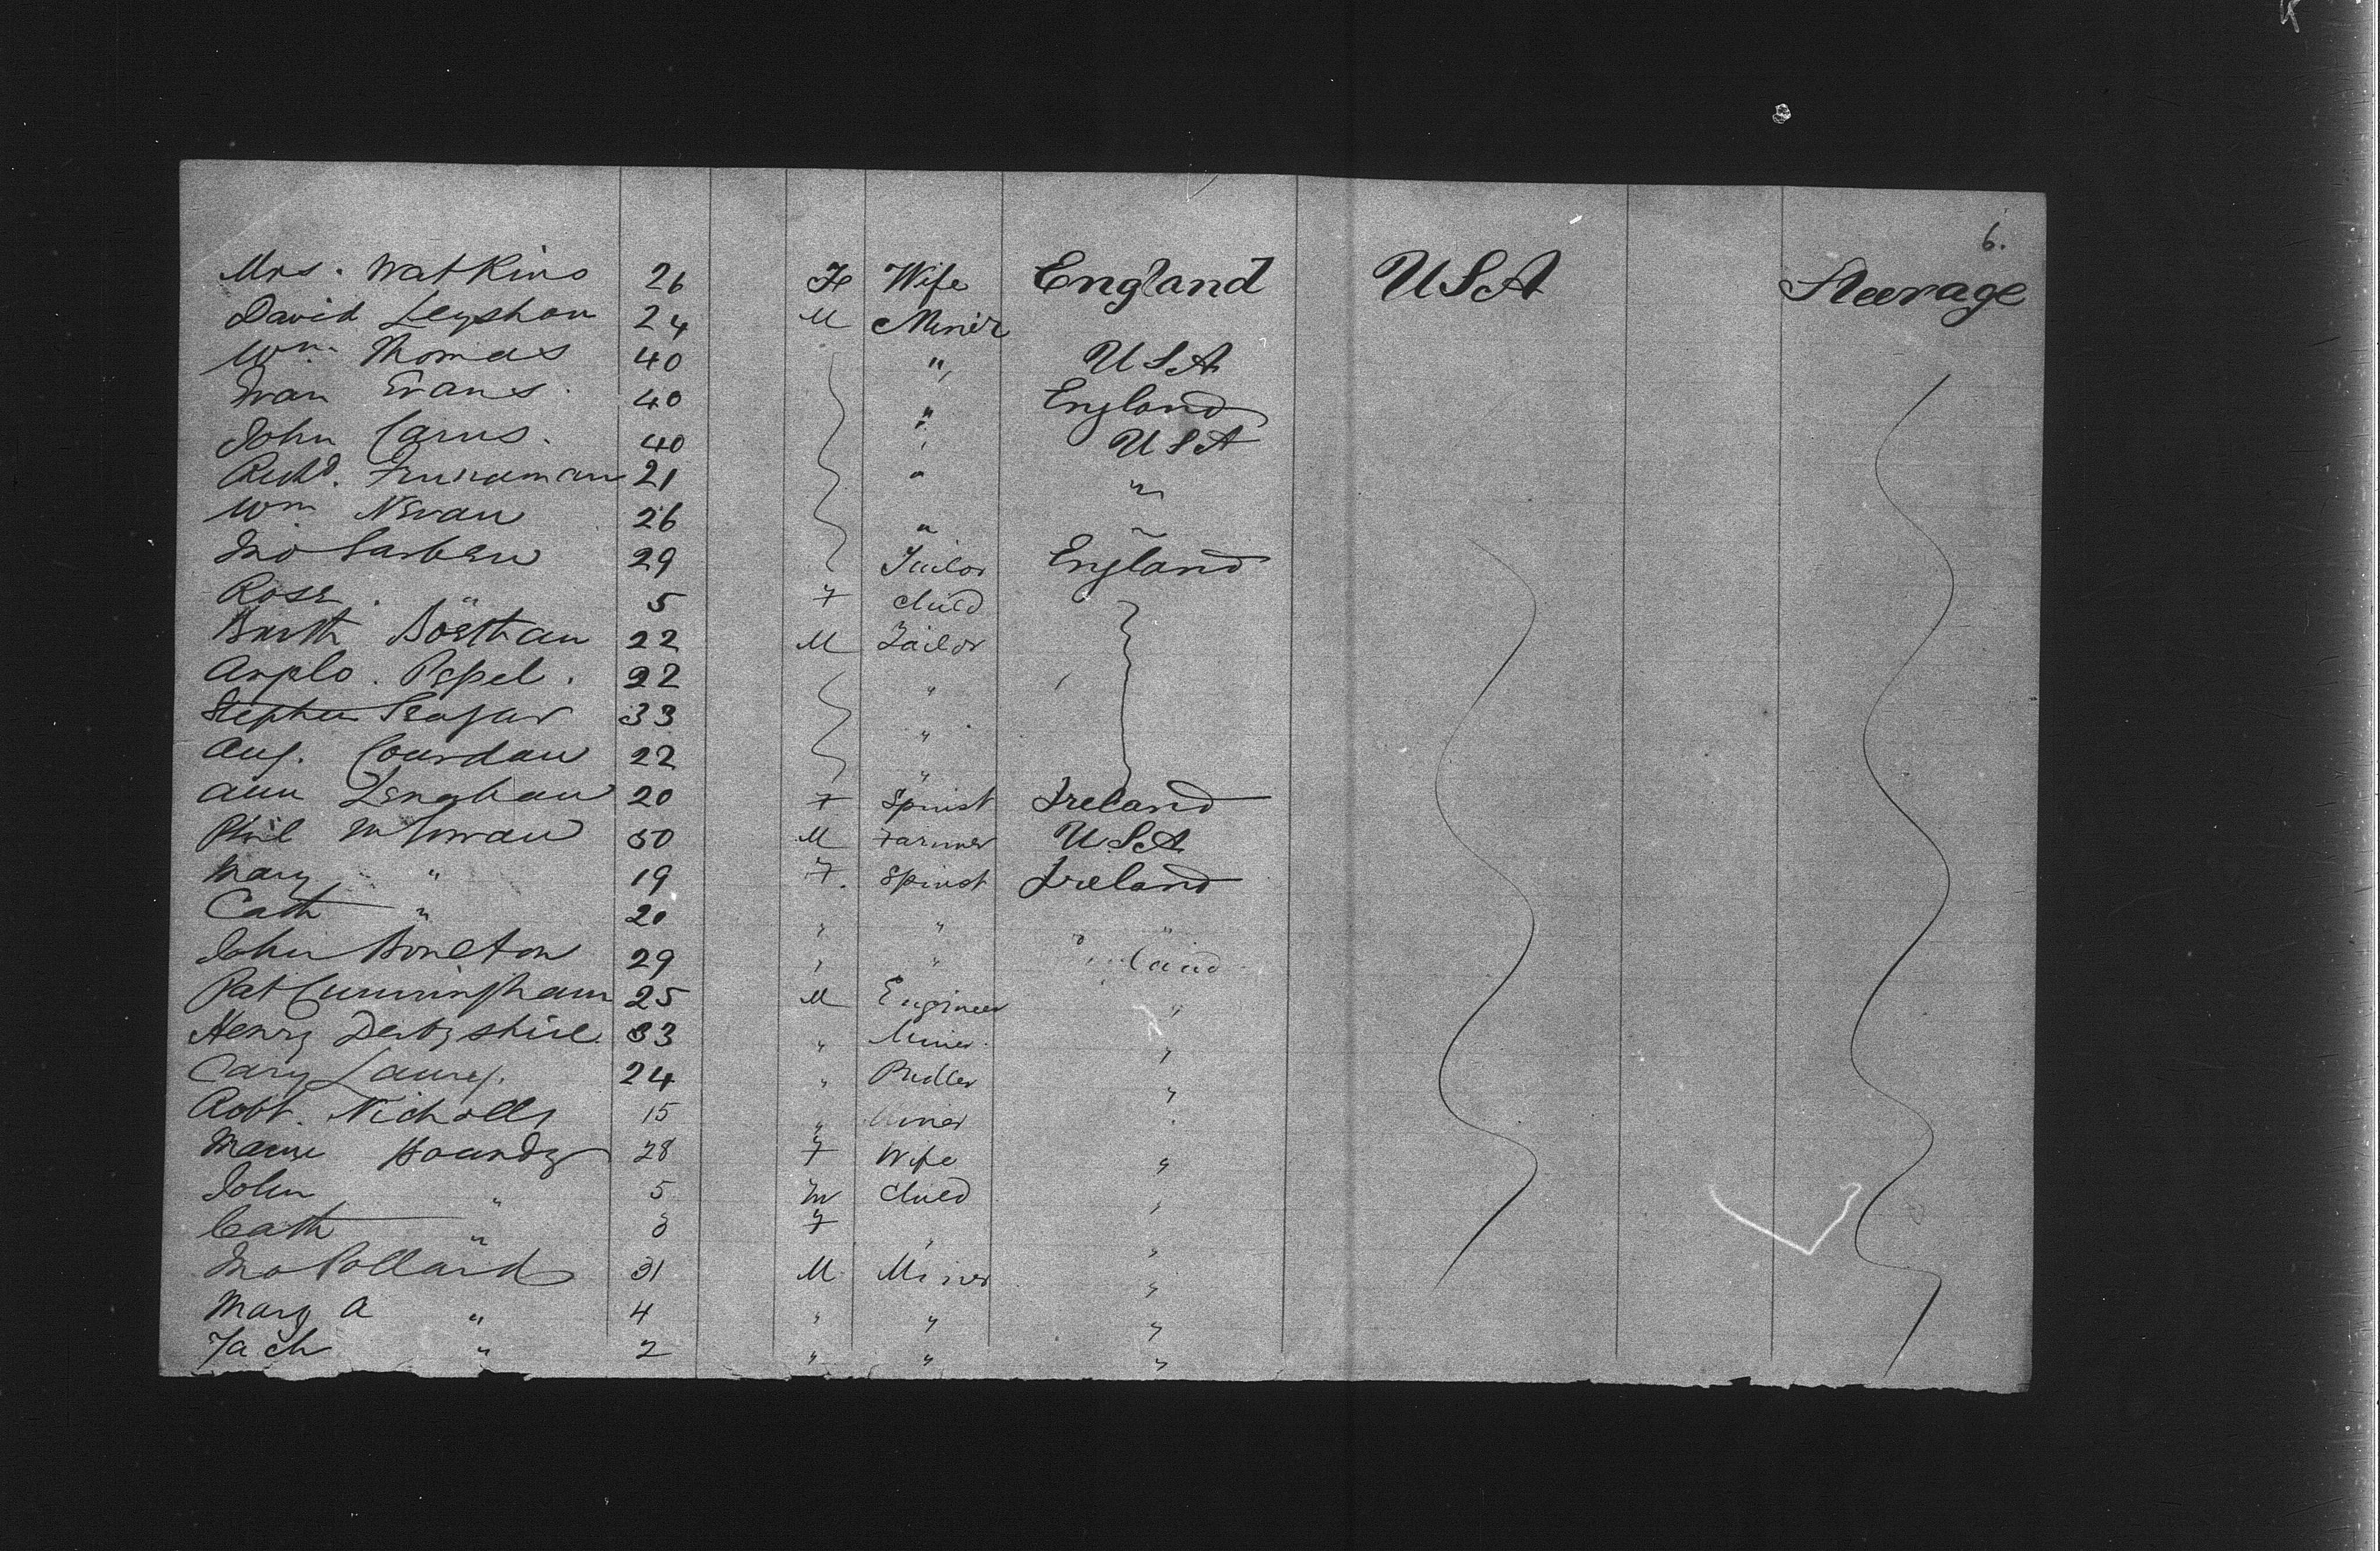 6.
Mrs. Watkins 26 Fe Wife England USA Steerage
David Leyshon 24 M Miner
Wm Thomas 40 " USA
Evan Evans 40 " England
John Carns. 40 " USA
Richd. 21 " "
Wm Nevau 26 " "
Jno 29 Tailor England
Rose " 5 F Child
22 M Tailor
Pepel. 22 "
Stephen 33 "
Aug. Courdau 22 "
Ann Lenghan 20 F Spinst Ireland
Phil 50 M Farmer USA
Mary " 19 F. Spinst Ireland
Cath " 20 " " "
John Boulton 29 " " land
Pat Cunningham 25 M Engineer "
Henry Derbyshire 33 " Miner "
24 " "
Robt. Nicholls 15 " Miner "
Houndy 28 F Wife "
John " 5 M Child "
Cath " 3 F " "
Jno Pollard 31 M Miner "
Mary A " 4 " " "
Zach " 2 " " "